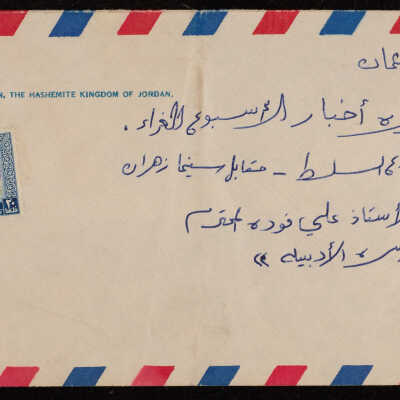 عمان
N, THE HASHEMITE KINGDOM OF JORDAN.
أخبار الأسبوع الغراء.
السلط - مقابل سينما زهران
الأستاذ علي فوده المحترم
الأدبيه »
٢٠